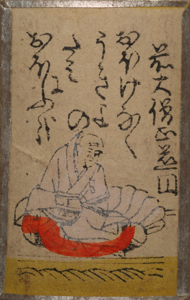 前大僧正慈円
おほけなく
うき世
の
たみ
に
おほふ哉